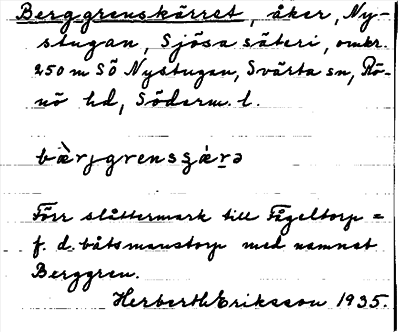 Berggrenskärret, åker, Ny-
stugan, Sjösa säteri, omkr.
250 m SÖ Nystugan, Svärta sn, Rö-
nö hd, Söderm. l.
Förr slåttermark till Fågeltorp =
f. d. båtsmanstorp med namnet
Berggren.
Herberth Eriksson 1935.